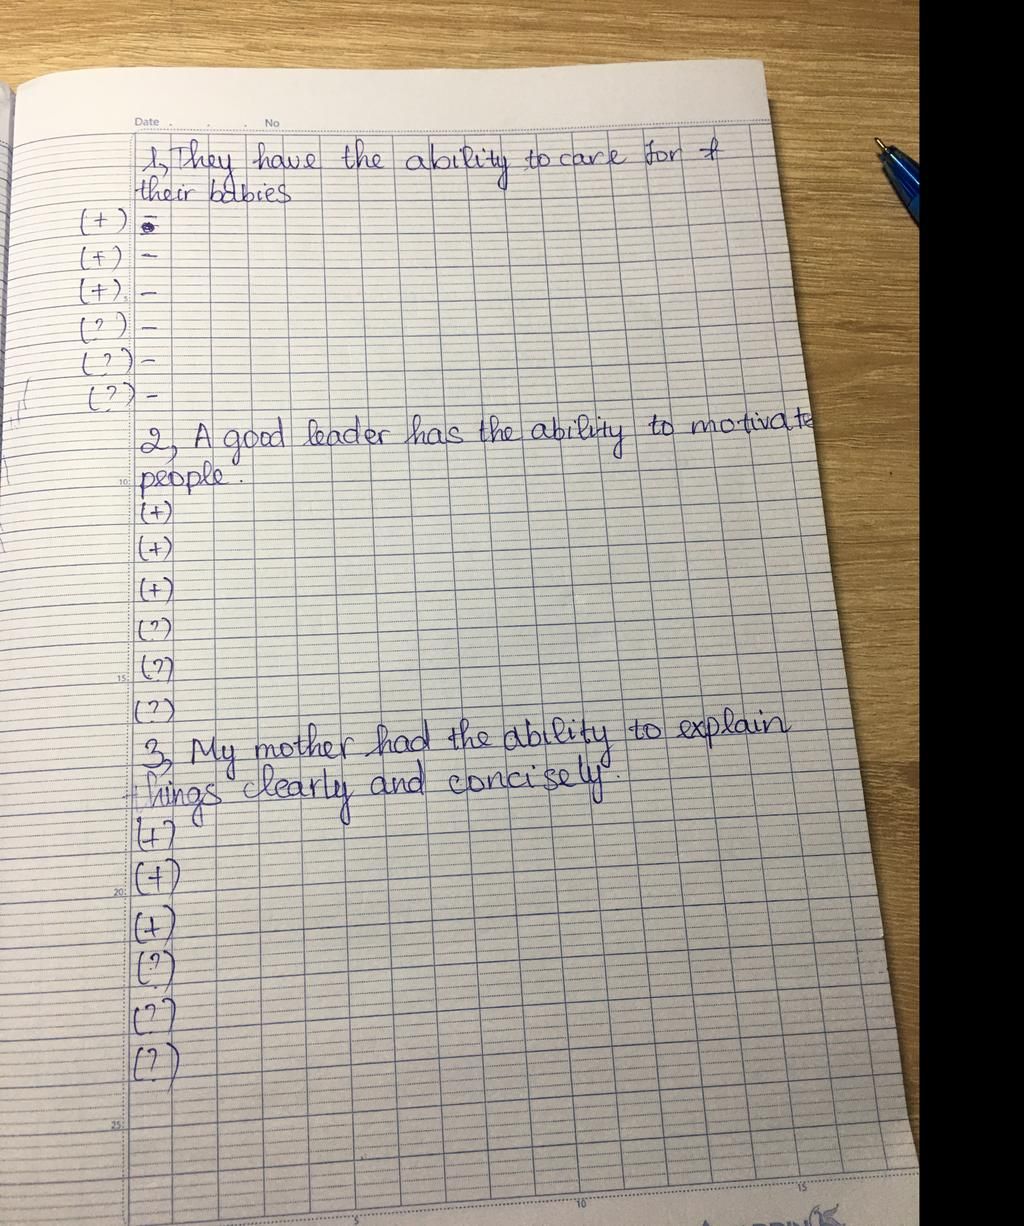 Date . . . No
1, They have the ability to care for
their babies
(+) -
(+) -
(+) -
(?) -
(?) -
(?) -
2, A good leader has the ability to motivate
10
people.
(+)
(+)
(+)
(?)
15
(?)
(?)
3, My mother had the ability to explain
things clearly and concisely.
(+)
20
(+)
(+)
(?)
(?)
(?)
25
5 10 15